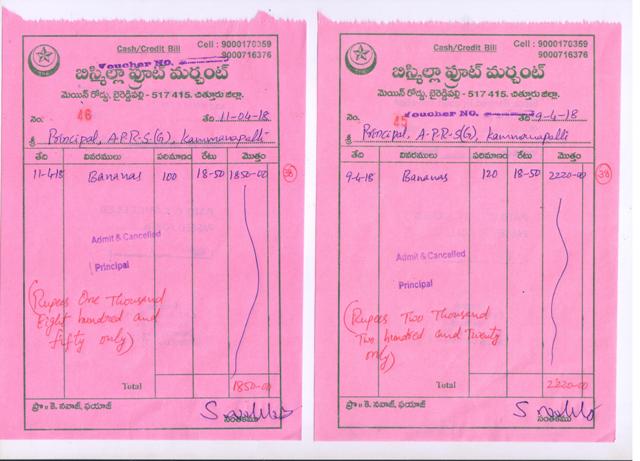 Cash/Credit Bill
Cell : 9000170359
9000716376
Voucher NO.
బిస్మిల్లా ఫ్రూట్ మర్చంట్
మెయిన్ రోడ్డు, బైరెడ్డిపల్లి - 517 415. చిత్తూరు జిల్లా.
నెం. 46 తేది 11-04-18
శ్రీ Principal, A.P.R.S.(G), Kammanapalli
తేది వివరములు పరిమాణం రేటు మొత్తం
11-4-18 Bananas 100 18-50 1850-00 38
Admit & Cancelled
Principal
(Rupees One Thousand
Eight hundred and
fifty only)
Total 1850-00
ప్రొ॥ కె. నవాజ్, ఫయాజ్
సంతకము
Cash/Credit Bill
Cell : 9000170359
9000716376
బిస్మిల్లా ఫ్రూట్ మర్చంట్
మెయిన్ రోడ్డు, బైరెడ్డిపల్లి - 517 415. చిత్తూరు జిల్లా.
Voucher NO.
నెం. 45 తేది 9-4-18
శ్రీ Principal, A.P.R.S(G), Kammanapalli
తేది వివరములు పరిమాణం రేటు మొత్తం
9-4-18 Bananas 120 18-50 2220-00 38
Admit & Cancelled
Principal
(Rupees Two Thousand
Two hundred and Twenty
only)
Total 2220-00
ప్రొ॥ కె. నవాజ్, ఫయాజ్
సంతకము